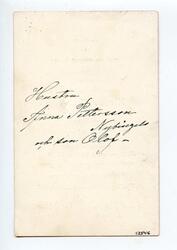 Hustru
Anna Pettersson
Nybingelo
och son Olof -
12546